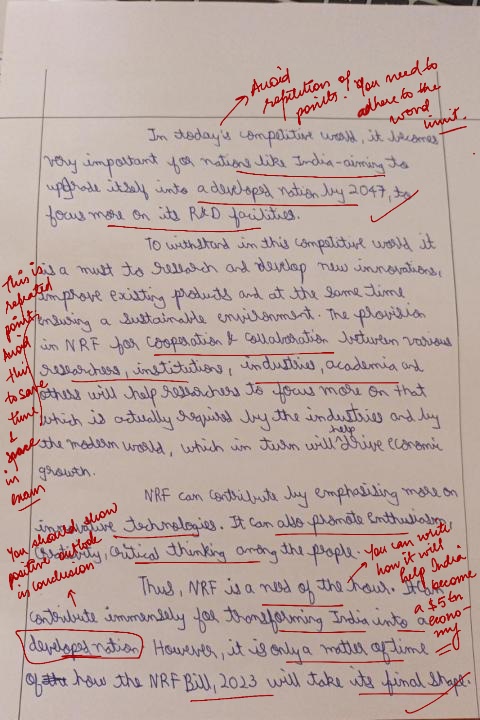 Avoid
repetition of
points! You need to
adhere to the
word
limit.
In today's competitive world, it becomes
very important for nations like India-aiming to
upgrade itself into a developed nation by 2047, to
focus more on its R&D facilities.
To withstand in this competitive world it
is a must to research and develop new innovations,
improve existing products and at the same time
ensuring a sustainable environment. The provision
in NRF for cooperation & collaboration between various
researchers, institutions, industries, academia and
others will help researchers to focus more on that
which is actually required by the industries and by
the modern world, which in turn will help drive economic
growth.
This is
repeated
point.
Avoid
this
to save
time
&
space
in
exam
NRF can contribute by emphasising more on
innovative technologies. It can also promote Enthusiasm,
Creativity, critical thinking among the people.
You should show
positive outlook
in conclusion
You can write
how it will
help India
become
a $5tn
econo-
my
Thus, NRF is a need of the hour. It can
contribute immensely for transforming India into a
developed nation. However, it is only a matter of time
of how the NRF Bill, 2023 will take its final shape.